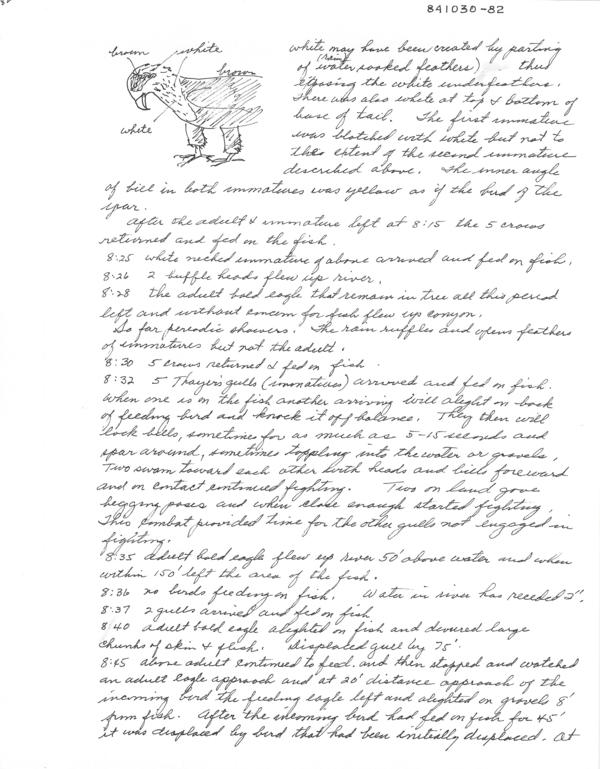 841030-82
brown
white
brown
white
white may have been created by parting
of (rain water soaked feathers) thus
exposing the white underfeathers.
There was also white at top & bottom of
base of tail. The first immature
was blotched with white but not to
the extent of the second immature
described above. The inner angle
of bill in both immatures was yellow as if the bird of the
year.
After the adult & immature left at 8:15 the 5 crows
returned and fed on the fish.
8:25 white necked immature of above arrived and fed on fish.
8:26 2 buffle heads flew up river.
8:28 the adult bald eagle that remain in tree all this period
left and without concern for fish flew up canyon.
So far periodic showers. The rain ruffles and opens feathers
of immatures but not the adult.
8:30 5 crows returned & fed on fish.
8:32 5 Thayer's gulls (immatures) arrived and fed on fish.
When one is on the fish another arriving will alight on back
of feeding bird and knock it off balance. They then will
lock bills, sometimes for as much as 5-15 seconds and
spar around, sometimes toppling into the water or gravels.
Two swam toward each other with heads and bills foreward
and on contact continued fighting. Two on land gave
begging poses and when close enough started fighting.
This combat provided time for the other gulls not engaged in
fighting.
8:35 adult bald eagle flew up river 50' above water and when
within 150' left the area of the fish.
8:36 no birds feeding on fish. Water in river has receded 2".
8:37 2 gulls arrived and fed on fish
8:40 adult bald eagle alighted on fish and devured large
chunks of skin & flesh. Displaced gull by 75'
8:45 above adult continued to feed and then stopped and watched
an adult eagle approach and at 20' distance approach of the
incoming bird the feeding eagle left and alighted on gravels 8'
from fish. After the incoming bird had fed on fish for 45'
it was displaced by bird that had been initially displaced. At